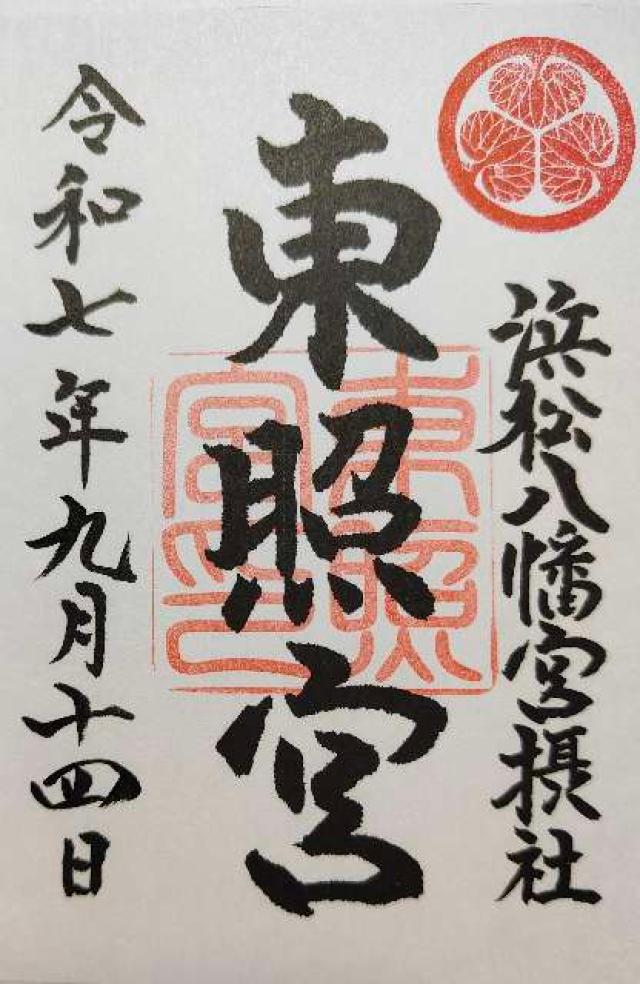 浜松八幡宮摂社
東照宮
東照宮印
令和七年九月十四日